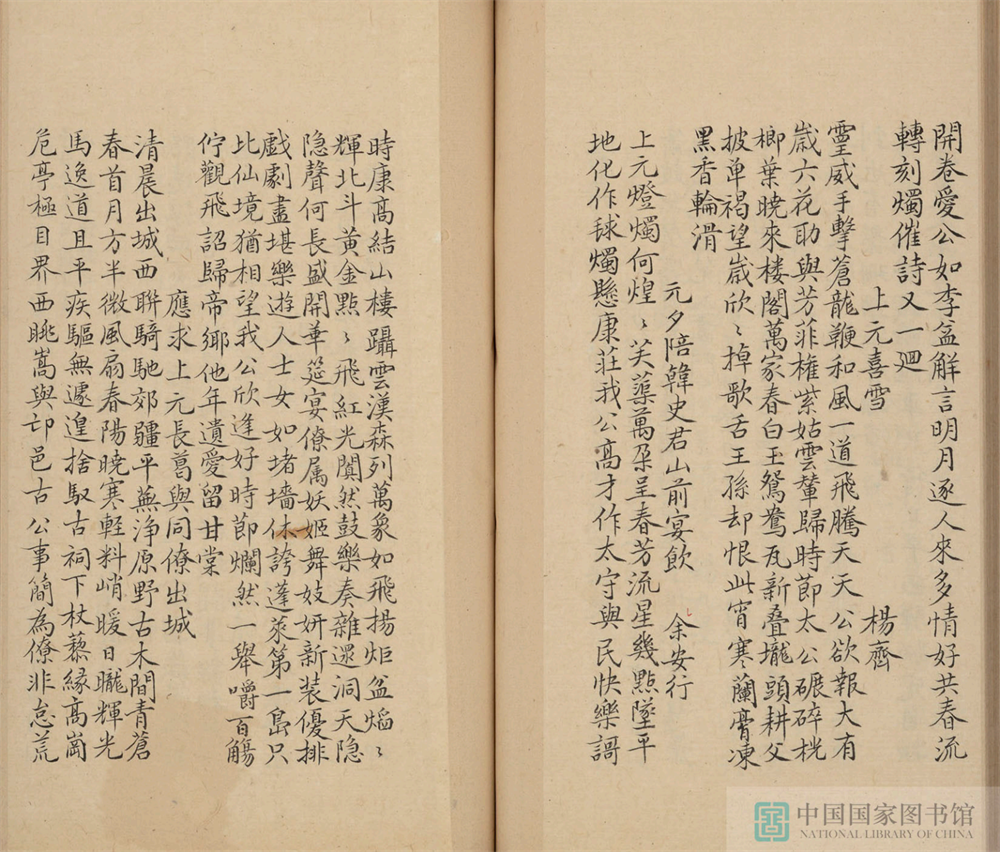 開卷愛公如李盆解言明月逐人來多情好共春流
轉刻燭催詩又一廻
上元喜雪　楊齊
靈威手擊蒼龍鞭和風一道飛騰天天公欲報大有
歲六花助與芳菲權紫姑雲輦歸時節太公碾碎桄
榔葉曉來楼閣萬家春白玉鴛鴦瓦新叠壠頭耕父
披单褐望歲欣〻掉歌舌王孫却恨此宵寒蘭膏凍
黑香輪滑
元夕陪韓史君山前宴飲　余安行
上元燈燭何煌〻芙蕖萬朶呈春芳流星幾點墜平
地化作毬燭懸康莊我公高才作太守與民快樂謌
時康高結山樓躡雲漢森列萬象如飛揚炬盆熖〻
輝北斗黄金點〻飛紅光闐然鼓樂奏雜遝洞天隐
隐聲何長盛開華筵宴僚属妖姬舞妓妍新装優排
戱劇盡堪樂遊人士女如堵墻休誇蓬萊第一島只
此仙境猶相望我公欣逢好時節爛然一舉嚼百觴
佇觀飛詔歸帝鄉他年遺愛留甘棠
應求上元長葛與同僚出城
清晨出城西聨騎馳郊疆平蕪浄原野古木間青蒼
春首月方半微風扇春陽曉寒軽料峭暖日曨輝光
馬逸道且平疾驅無遽遑捨馭古祠下杖藜緣高崗
危亭極目界西眺嵩與邙邑古公事簡為僚非怠荒
中国国家图书馆
NATIONAL LIBRARY OF CHINA